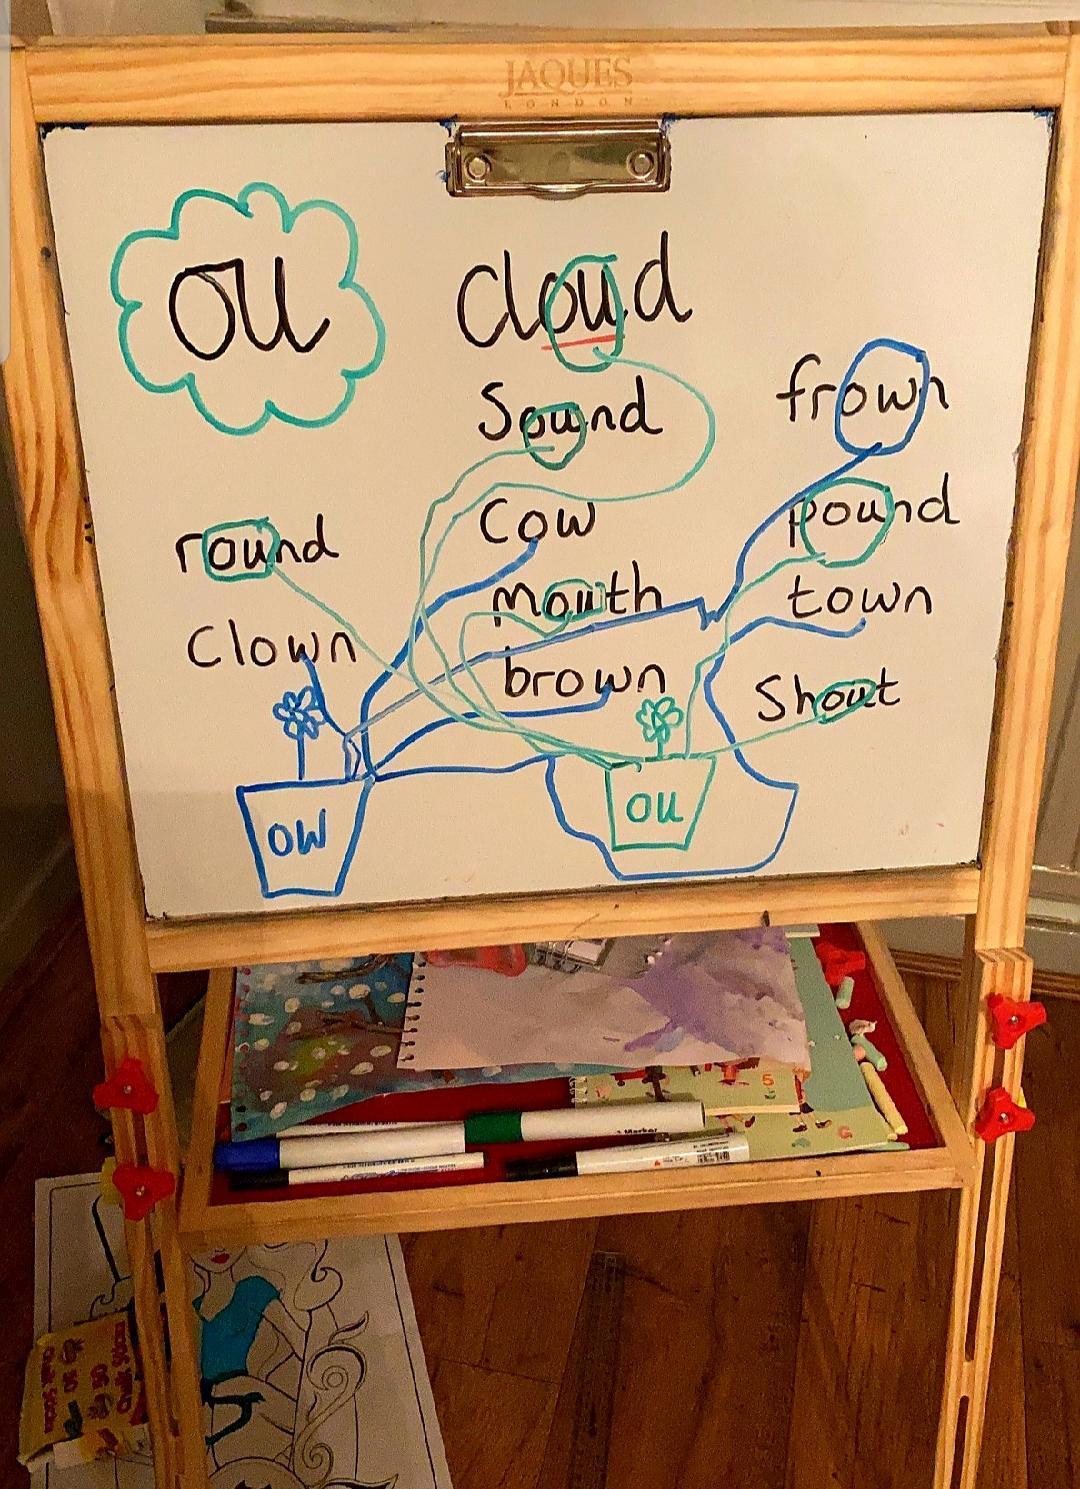 JAQUES
LONDON
ou
cloud
Sound
frown
cow
pound
round
mouth
town
Clown
brown
Shout
ow
ou
Marker
5
6